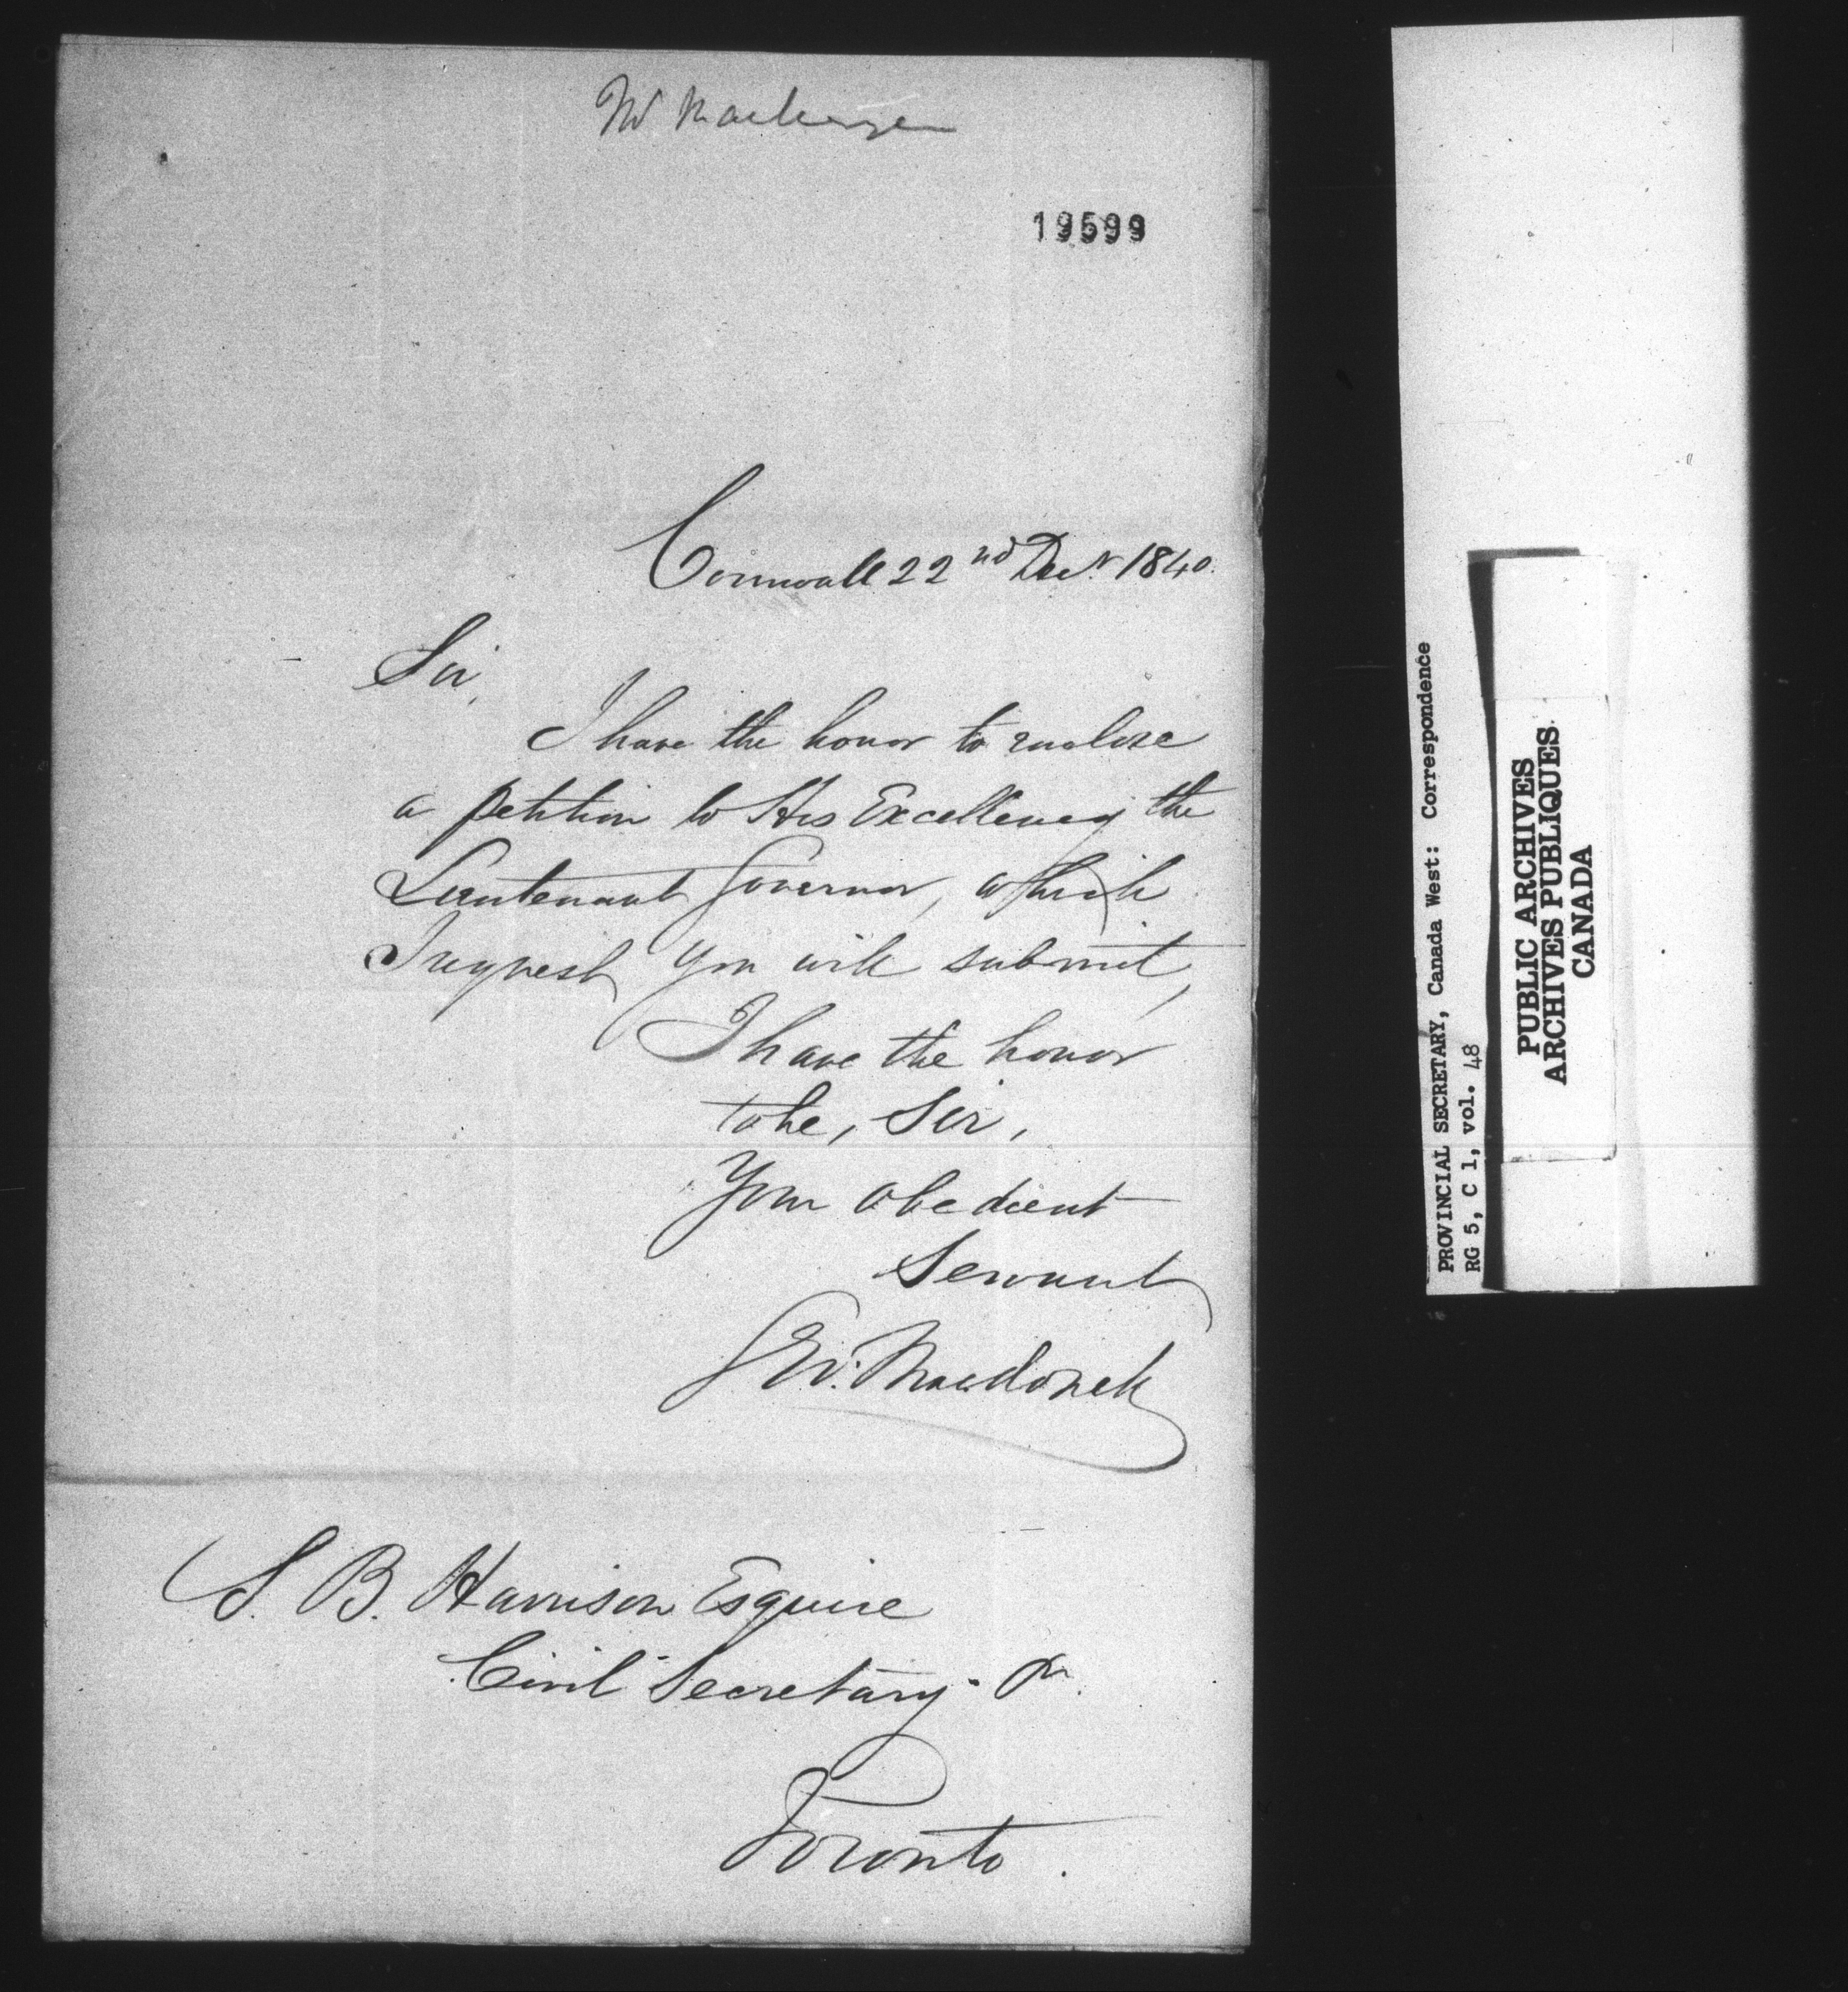 Mr Mackenzie
19599
Cornwall 22nd Decr 1840.
Sir,
I have the honor to enclose
a petition to His Excellency the
Lieutenant Governor, which
I request you will submit,
I have the honor
to be, Sir,
Your obedient
Servant
Macdonell
S. B. Harrison Esquire
Civil Secretary
Toronto.
PROVINCIAL SECRETARY, Canada West: Correspondence
RG 5, C 1, vol. 48
PUBLIC ARCHIVES
ARCHIVES PUBLIQUES
CANADA